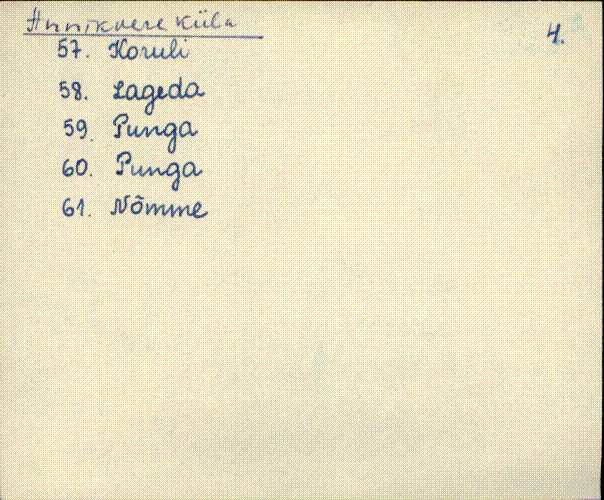 Annikvere küla
4.
57. Koruli
58. Lageda
59. Punga
60. Punga
61. Nõmme